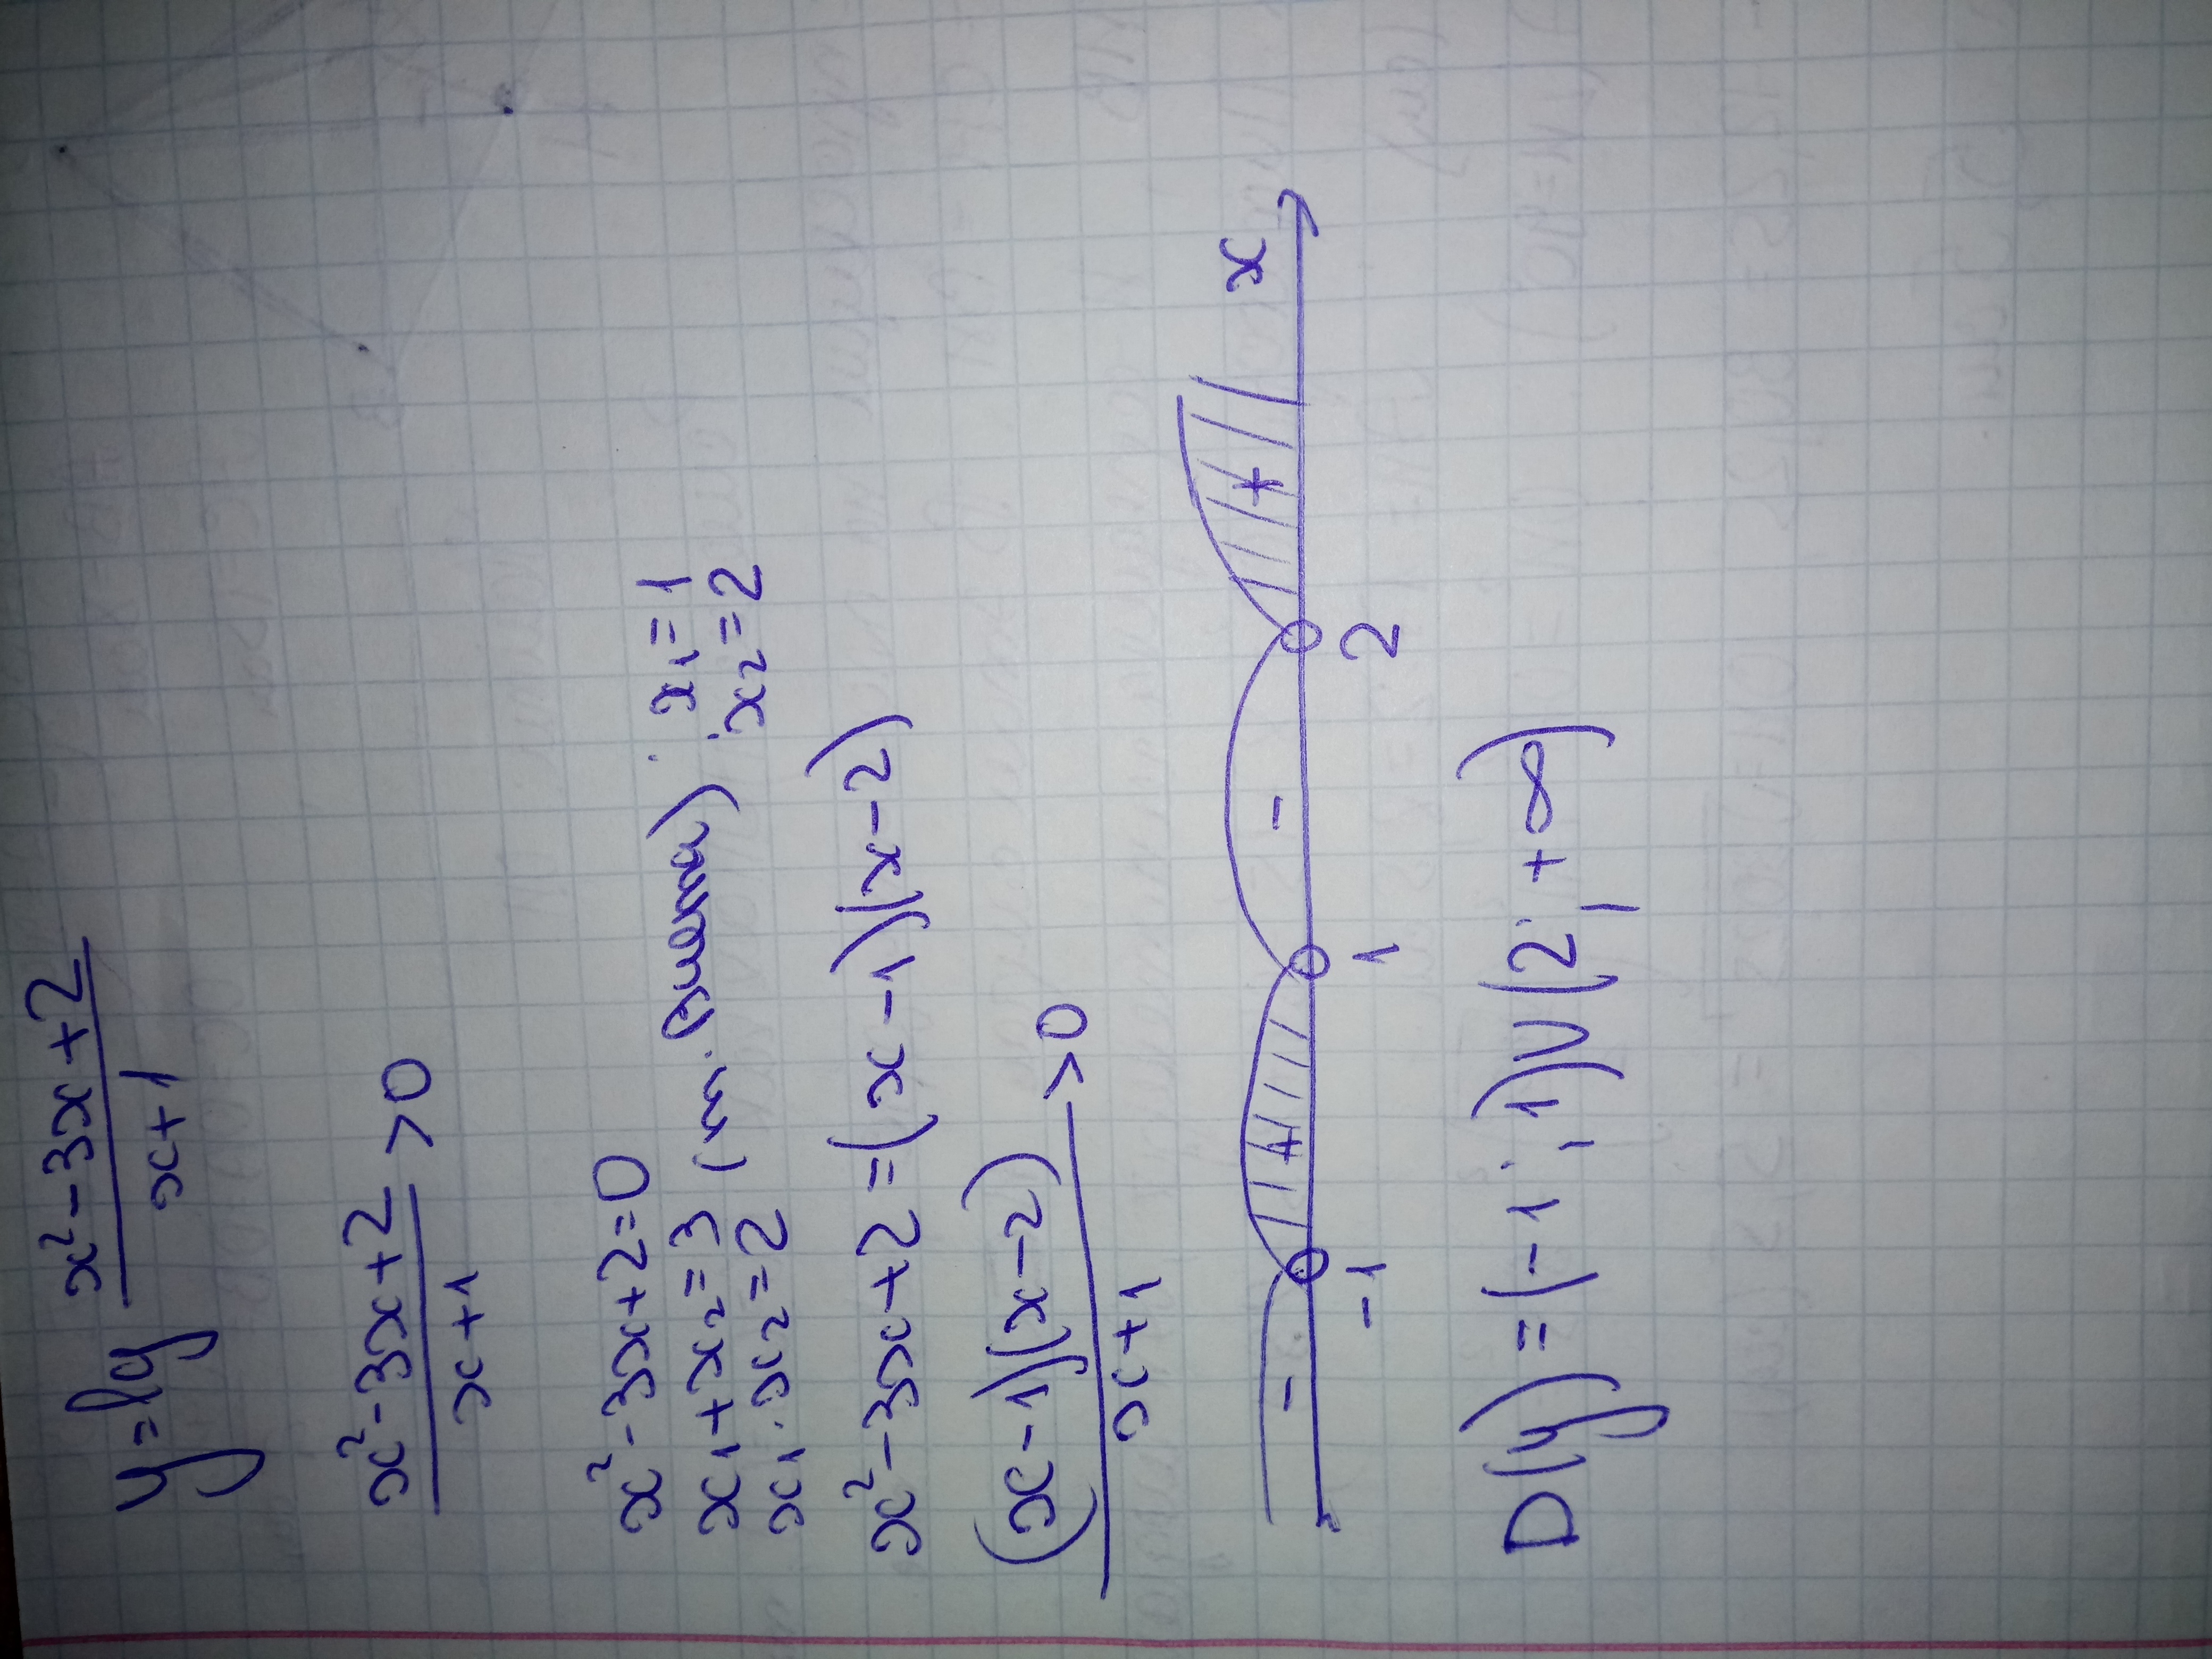 y = lg x² - 3x + 2 / x + 1
x² - 3x + 2 / x + 1 > 0
x² - 3x + 2 = 0
x₁ + x₂ = 3 (т. Виета) x₁ = 1
x₁ · x₂ = 2 x₂ = 2
x² - 3x + 2 = (x - 1)(x - 2)
(x - 1)(x - 2) / x + 1 > 0
- + - + x
-1 1 2
D(y) = (-1; 1) ∪ (2; +∞)